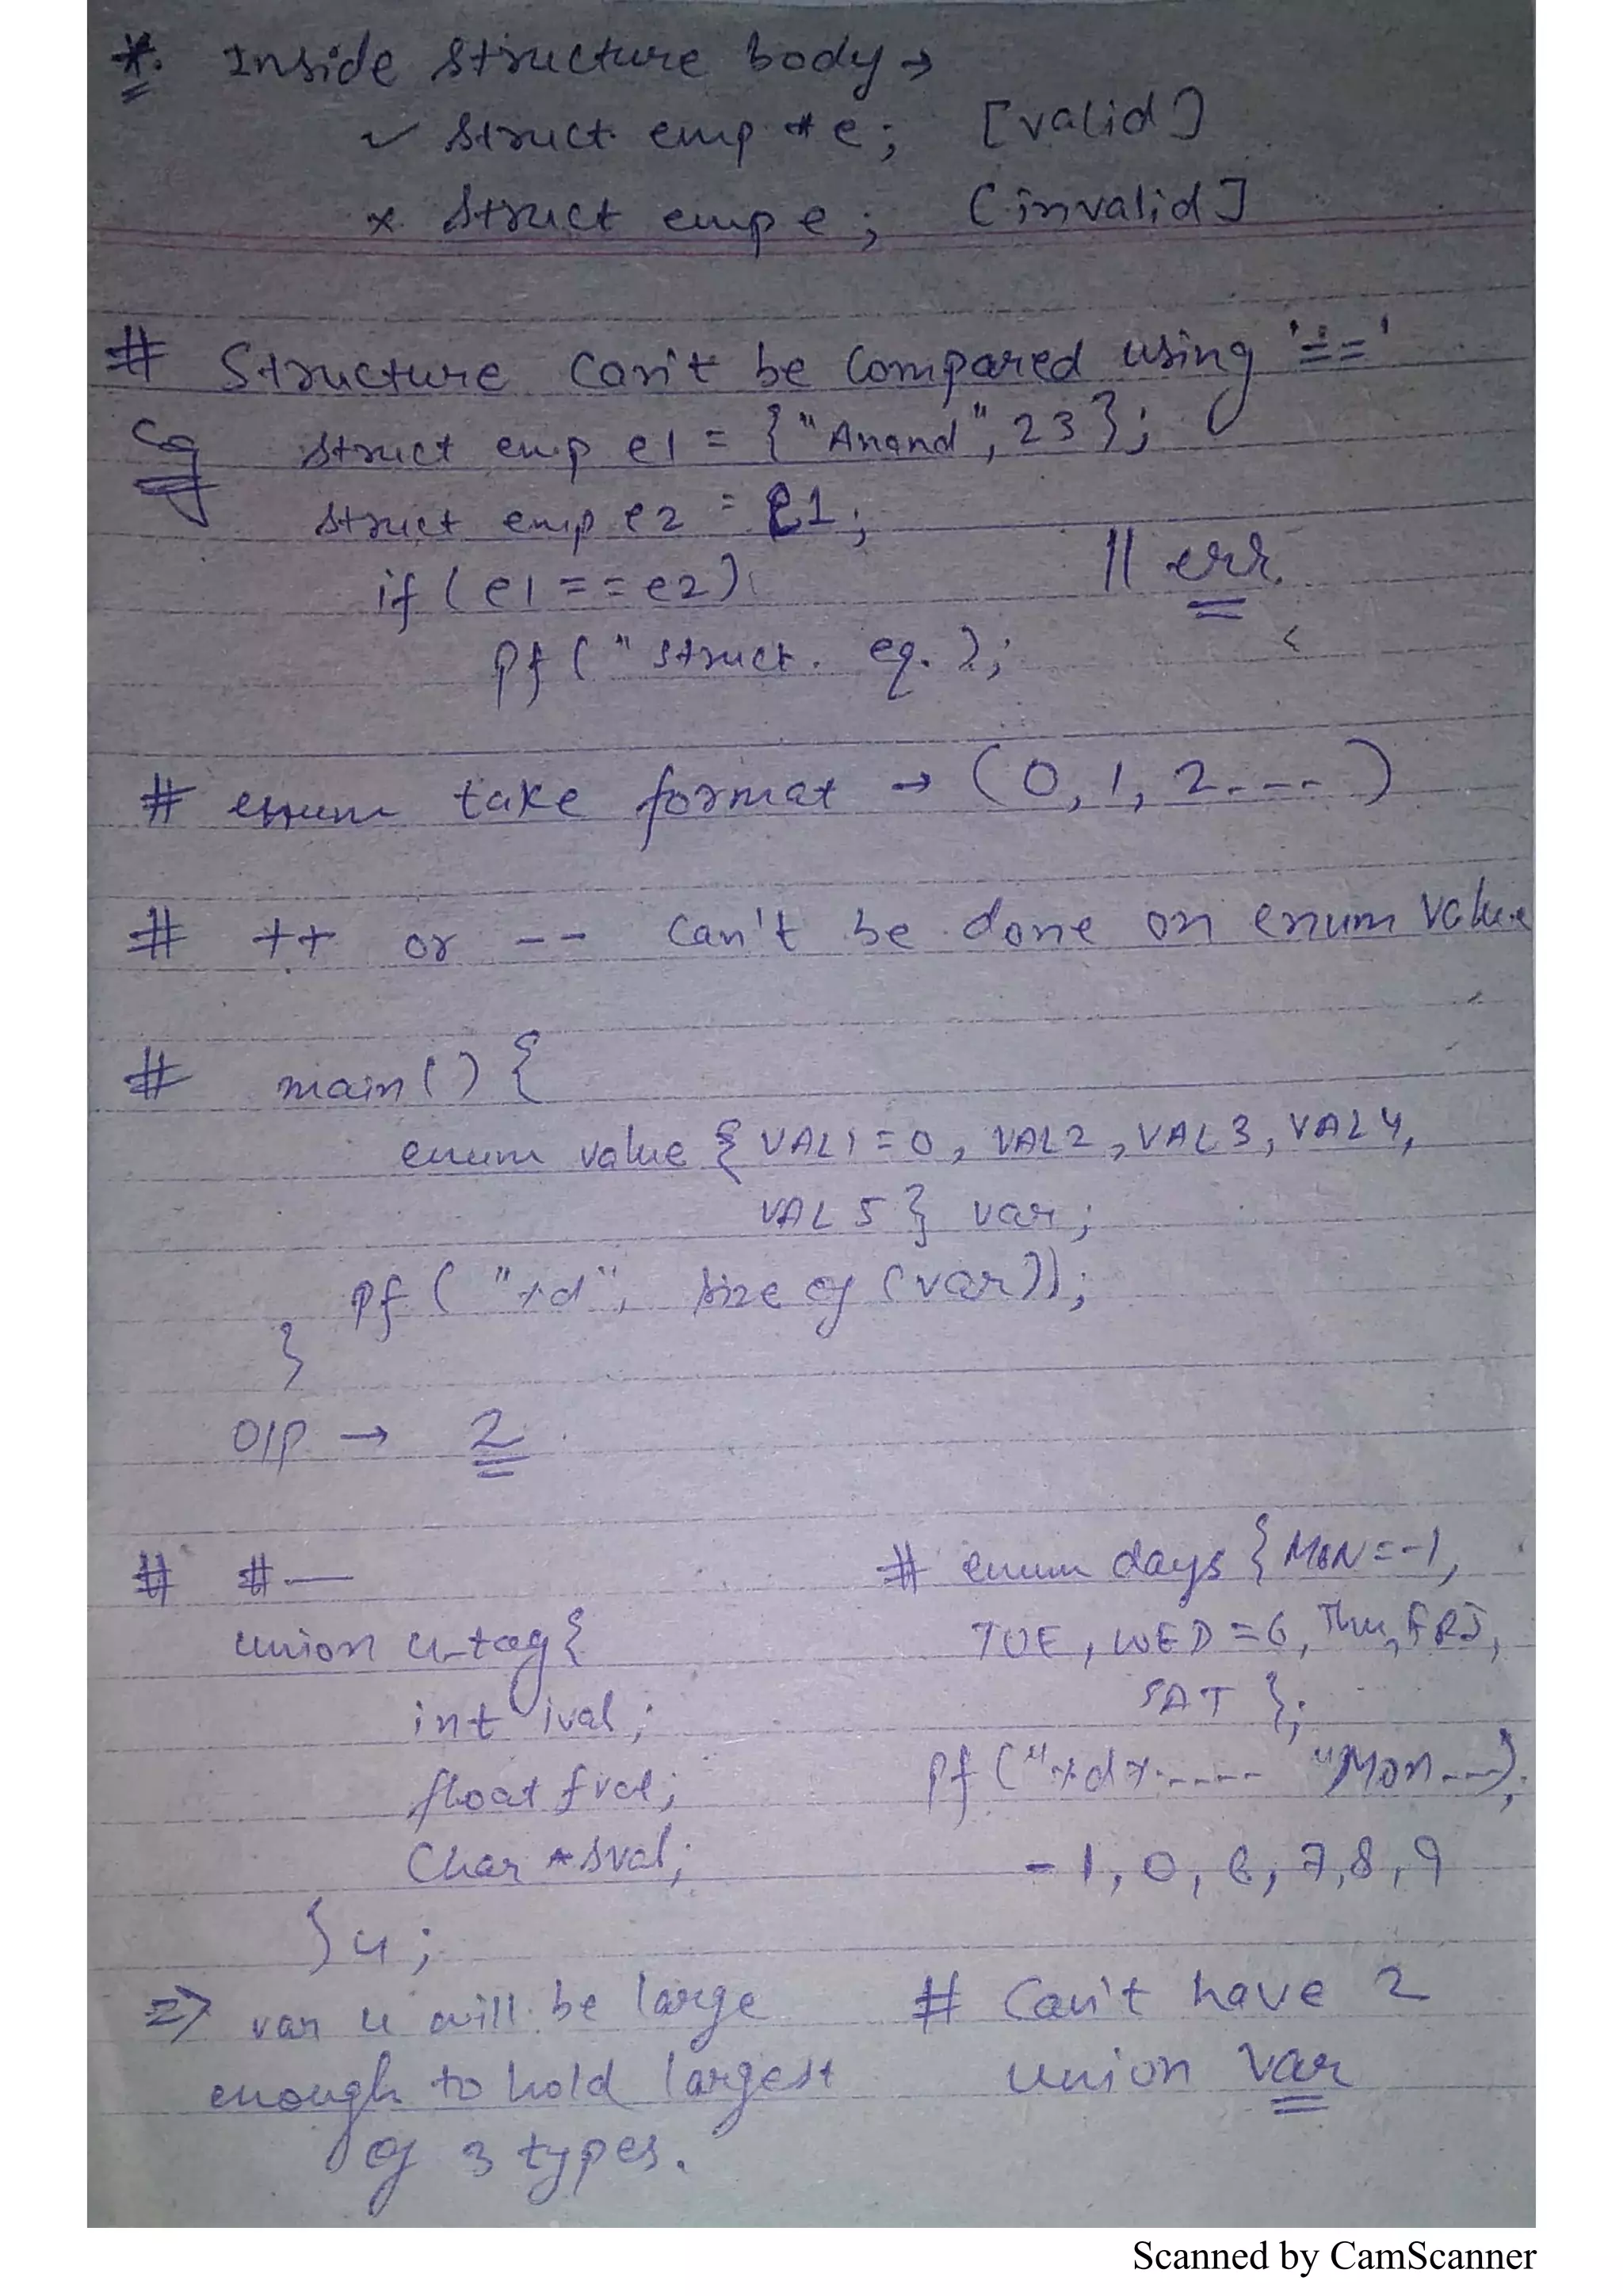 *. Inside structure body →
✓ struct emp *e; [valid]
× struct emp e; [invalid]
# Structure can't be compared using '=='
Eg struct emp e1 = {"Anand", 23};
struct emp e2 = e1;
if (e1 == e2) // err.
pf (" struct. eq. );
# enum take format → (0, 1, 2---- )
# ++ or -- can't be done on enum value
# main() {
enum value { VAL1=0, VAL2, VAL3, VAL4,
VAL5 } var;
pf ( "%d", size of (var));
}
O/P → 2
# #.—
union u_tag{
int ival;
float fval;
Char *sval;
} u;
=> var u will be large
enough to hold largest
of 3 types.
# enum days { MON=-1,
TUE, WED=6, Thu, FRI,
SAT };
pf ("%d%----- "Mon---);
-1, 0, 6, 7, 8, 9
# Can't have 2
union var
Scanned by CamScanner